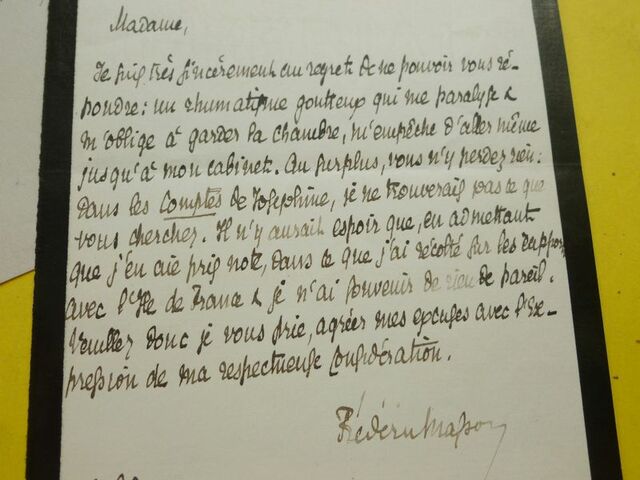 Madame,
Je suis très sincèrement au regret de ne pouvoir vous ré-
pondre: un rhumatisme goutteux qui me paralyse &
m'oblige à garder la chambre, m'empêche d'aller même
jusqu'à mon cabinet. Au surplus, vous n'y perdez rien:
dans les Comptes de Joséphine, je ne trouverais pas ce que
vous cherchez. Il n'y aurait espoir que, en admettant
que j'en aie pris note, dans ce que j'ai récolté sur les rapports
avec l'Ile de France & je n'ai souvenir de rien de pareil.
Veuillez donc je vous prie, agréer mes excuses avec l'Ex-
pression de ma respectueuse considération.
Frédéric Masson